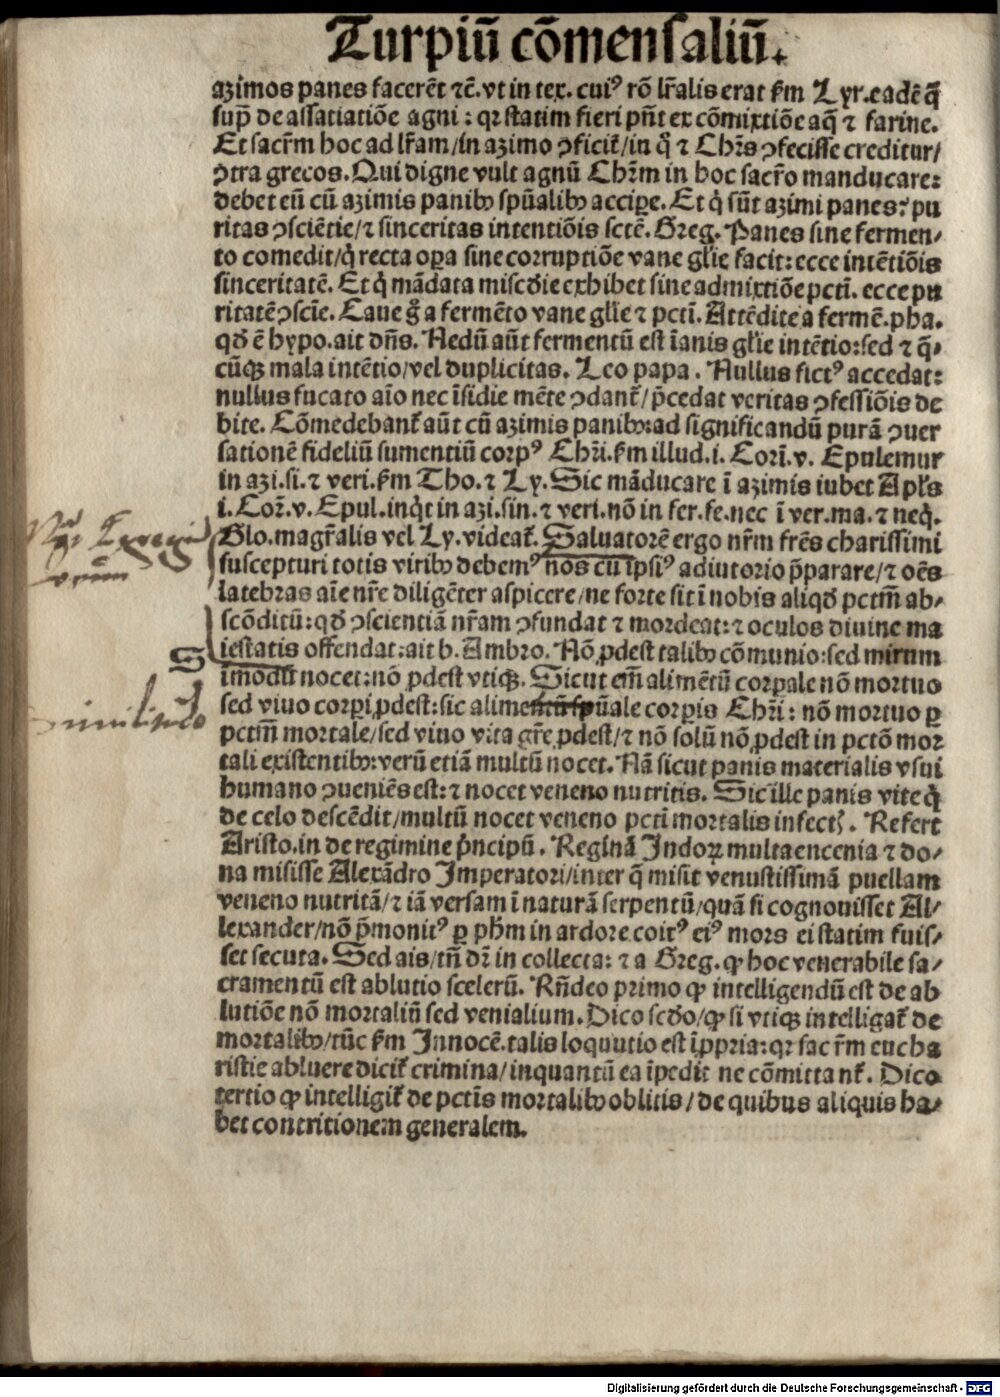 Turpiū cōmensaliū.
azimos panes facerēt ⁊c̄. vt in tex. cuiꝰ rō lr̄alis erat fm Lyr. eadē q̄
sup̄ de assatiatiōe agni : qꝛ statim fieri pn̄t ex cōmixtiōe aq̄ ⁊ farine.
Et sacr̄m hoc ad lr̄am/in azimo ꝯficit̄/in q̊ ⁊ Chr̄s ꝯfecisse creditur/
ꝯtra grecos. Qui digne vult agnū Chr̄m in hoc sacr̄o manducare:
debet eū cū azimis panibꝰ spūalibꝰ accipe. Et q̇ sūt azimi panes? pu
ritas ꝯsciētie/⁊ sinceritas intentiōis sctē. Greg. Panes sine fermen/
to comedit/q̇ recta oꝑa sine corruptiōe vane gl̄ie facit: ecce intētiōis
sinceritatē. Et q̇ mādata miscd̄ie exhibet sine admixtiōe pctī. ecce pu
ritatē ꝯscīe. Caue g̊ a fermēto vane gl̄ie ⁊ pctī. Attēdite a fermē. pha.
qd̄ ē hypo. ait dn̄s. Nedū aūt fermentū est īanis gl̄ie intētio: sed ⁊ q̄/
cūqꝫ mala intētio/vel duplicitas. Leo papa. Nullus fictꝰ accedat:
nullus fucato aīo nec īsidie mēte ꝯdant̄/p̄cedat veritas ꝯfessiōis de
bite. Cōmedebant̄ aūt cū azimis panibꝰ: ad significandū purā ꝯuer
sationē fideliū sumentiū corpꝰ Chr̄i. fm illud. i. Corī. v. Epulemur
in azi. si. ⁊ veri. fm Tho. ⁊ Ly. Sic māducare ī azimis iubet Apl̄s
i. Cor̄. v. Epul. inq̇t in azi. sin. ⁊ veri. nō in fer. fe. nec ī ver. ma. ⁊ neq̇.
Glo. magr̄alis vel Ly. videat̄. Saluatorē ergo nr̄m frēs charissimi
suscepturi totis viribꝰ debemꝰ nos cū īpsiꝰ adiutorio p̄parare/⁊ oēs
latebras aīe nr̄e diligēter aspicere/ne forte sit ī nobis aliqd̄ pctm̄ ab/
scōditū: qd̄ ꝯscientiā nr̄am ꝯfundat ⁊ mordeat: ⁊ oculos diuine ma
iestatis offendat: ait b. Ambro. Nō ꝓdest talibꝰ cōmunio: sed mirum
īmodū nocet: nō ꝓdest vtiqꝫ. Sicut em̄ alimētū corꝑale nō mortuo
sed viuo corpi ꝓdest: sic alimentū spūale corpis Chr̄i: nō mortuo ꝑ
pctm̄ mortale/sed viuo vita gr̄e ꝓdest/⁊ nō solū nō ꝓdest in pctō mor
tali existentibꝰ: verū etiā multū nocet. Nā sicut panis materialis vsui
humano ꝯueniēs est: ⁊ nocet veneno nutritis. Sic ille panis vite q̇
de celo descēdit/multū nocet veneno pctī mortalis infectꝭ. Refert
Aristo. in de regimine p̄ncipū. Reginā Indoꝝ multa encenia ⁊ do/
na misisse Alexādro Imperatori/inter q̄ misit venustissimā puellam
veneno nutritā/⁊ iā versam ī naturā serpentū/quā si cognouisset Al/
lexander/nō p̄monitꝰ ꝑ ph̄m in ardore coitꝰ eiꝰ mors ei statim fuis/
set secuta. Sed ais/tn̄ dr̄ in collecta: ⁊ a Greg. ꝙ hoc venerabile sa/
cramentū est ablutio scelerū. Rn̄deo primo ꝙ intelligendū est de ab
lutiōe nō mortaliū sed venialium. Dico scd̄o/ꝙ si vtiqꝫ intelligat̄ de
mortalibꝰ/tūc fm Innocē. talis loquutio est īpp̄ria: qꝛ sacr̄m eucha
ristie abluere dicit̄ crimina/inquantū ea īpedit ne cōmittant̄. Dico
tertio ꝙ intelligit̄ de pctīs mortalibꝰ oblitis/de quibus aliquis ha/
bet contritionem generalem.
S
Similitudo
Digitalisierung gefördert durch die Deutsche Forschungsgemeinschaft - DFG